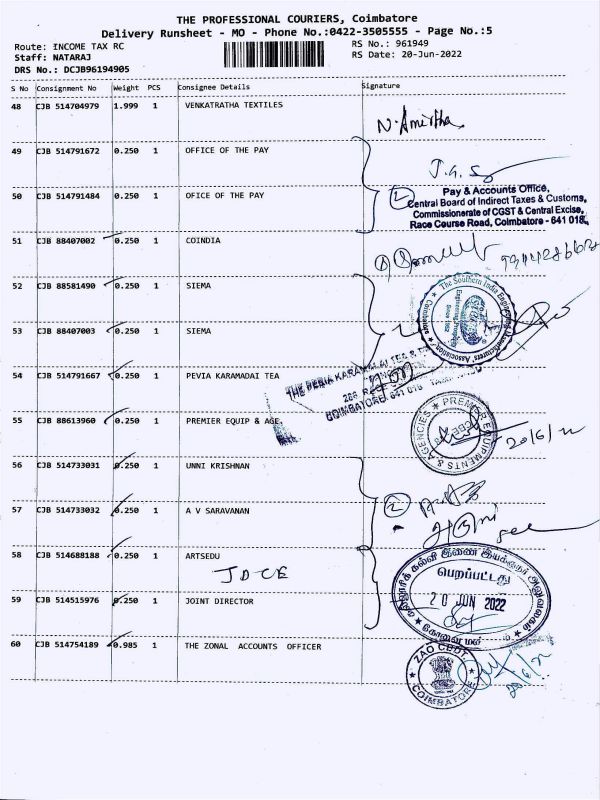 THE PROFESSIONAL COURIERS, Coimbatore
Delivery Runsheet - MO - Phone No.:0422-3505555 - Page No.:5
Route: INCOME TAX RC
RS No.: 961949
Staff: NATARAJ
RS Date: 20-Jun-2022
DRS No.: DCJB96194905
S No Consignment No Weight PCS Consignee Details Signature
48 CJB 514704979 1.999 1 VENKATRATHA TEXTILES
N. Amirtha
49 CJB 514791672 0.250 1 OFFICE OF THE PAY
50 CJB 514791484 0.250 1 OFICE OF THE PAY
2
Pay & Accounts Office,
Central Board of Indirect Taxes & Customs,
Commissionerate of CGST & Central Excise,
Race Course Road, Coimbatore - 641 018.
51 CJB 88407002 0.250 1 COINDIA
52 CJB 88581490 0.250 1 SIEMA
The Southern India Engineering Manufacturers Association
Coimbatore
53 CJB 88407003 0.250 1 SIEMA
54 CJB 514791667 0.250 1 PEVIA KARAMADAI TEA
THE PERIA KARAMALAI TEA &
COIMBATORE 641 018
55 CJB 88613960 0.250 1 PREMIER EQUIP & AGE
PREMIER EQUIPMENTS & AGENCIES
20/6/22
56 CJB 514733031 0.250 1 UNNI KRISHNAN
2
57 CJB 514733032 0.250 1 A V SARAVANAN
58 CJB 514688188 0.250 1 ARTSEDU
JDCE
கல்லூரிக் கல்வி இணை இயக்குநர் அலுவலகம்
பெறப்பட்டது
20 JUN 2022
கோவை மண்
59 CJB 514515976 0.250 1 JOINT DIRECTOR
60 CJB 514754189 0.985 1 THE ZONAL ACCOUNTS OFFICER
ZAO CBDT
COIMBATORE